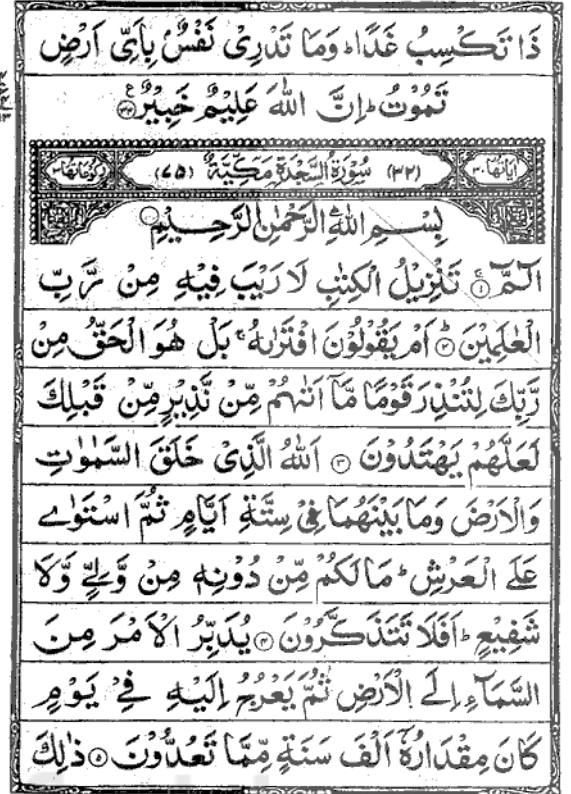 ذَا تَكْسِبُ غَدًا ؕ وَمَا تَدْرِیْ نَفْسٌۢ بِاَیِّ اَرْضٍ
تَمُوْتُ ؕ اِنَّ اللّٰهَ عَلِیْمٌ خَبِیْرٌ ﴿۳۴﴾ ع
اٰیَاتُهَا ۳۰ (۳۲) سُوْرَةُ السَّجْدَةِ مَكِّیَّةٌ (۷۵) رُكُوْعَاتُهَا ۳
بِسْمِ اللّٰهِ الرَّحْمٰنِ الرَّحِیْمِ
الٓمّٓ ﴿۱﴾ تَنْزِیْلُ الْكِتٰبِ لَا رَیْبَ فِیْهِ مِنْ رَّبِّ
الْعٰلَمِیْنَ ﴿۲﴾ اَمْ یَقُوْلُوْنَ افْتَرٰىهُ ۚ بَلْ هُوَ الْحَقُّ مِنْ
رَّبِّكَ لِتُنْذِرَ قَوْمًا مَّاۤ اَتٰىهُمْ مِّنْ نَّذِیْرٍ مِّنْ قَبْلِكَ
لَعَلَّهُمْ یَهْتَدُوْنَ ﴿۳﴾ اَللّٰهُ الَّذِیْ خَلَقَ السَّمٰوٰتِ
وَالْاَرْضَ وَمَا بَیْنَهُمَا فِیْ سِتَّةِ اَیَّامٍ ثُمَّ اسْتَوٰى
عَلَى الْعَرْشِ ؕ مَا لَكُمْ مِّنْ دُوْنِهٖ مِنْ وَّلِیٍّ وَّلَا
شَفِیْعٍ ؕ اَفَلَا تَتَذَكَّرُوْنَ ﴿۴﴾ یُدَبِّرُ الْاَمْرَ مِنَ
السَّمَآءِ اِلَى الْاَرْضِ ثُمَّ یَعْرُجُ اِلَیْهِ فِیْ یَوْمٍ
كَانَ مِقْدَارُهٗۤ اَلْفَ سَنَةٍ مِّمَّا تَعُدُّوْنَ ﴿۵﴾ ذٰلِكَ